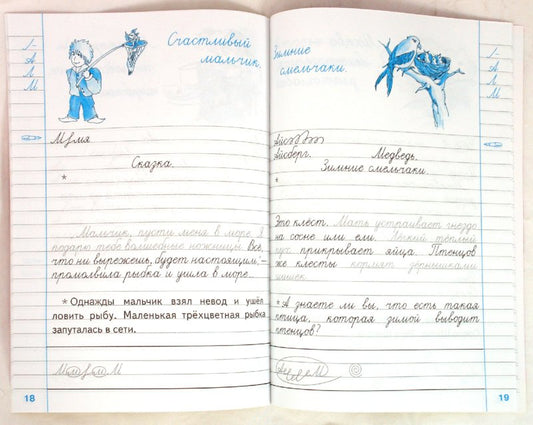 Счастливый
мальчик.
1-
А
Л
М
Мля
Сказка.
*
Мальчик, пусти меня в море. Я
подарю тебе волшебные ножницы. Всё,
что ни вырежешь, будет настоящим, -
промолвила рыбка и ушла в море.
* Однажды мальчик взял невод и ушёл
ловить рыбу. Маленькая трёхцветная рыбка
запуталась в сети.
18
Зимние
смельчаки.
1-
А
Л
М
Айсберг. Медведь.
Зимние смельчаки.
*
Это клёст. Мать устраивает гнездо
на сосне или ели. Лёгкий тёплый
пух прикрывает яйца. Птенцов
же клесты кормят зёрнышками
шишек.
* А знаете ли вы, что есть такая
птица, которая зимой выводит
птенцов?
19